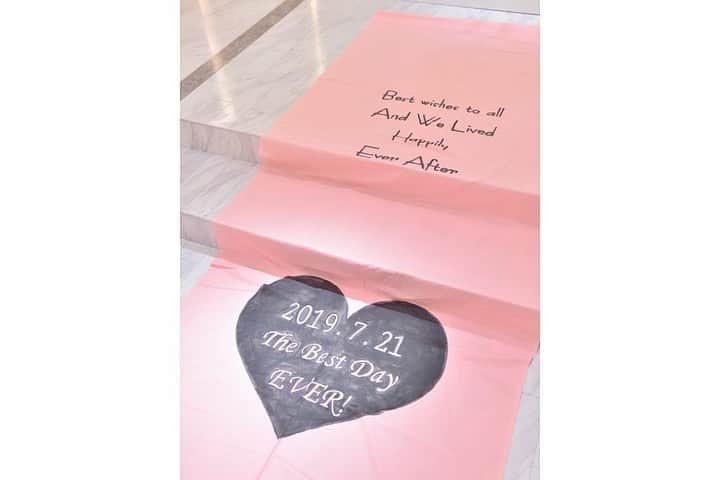 Best wishes to all
And We Lived
Happily
Ever After
2019.7.21
The Best Day
EVER!